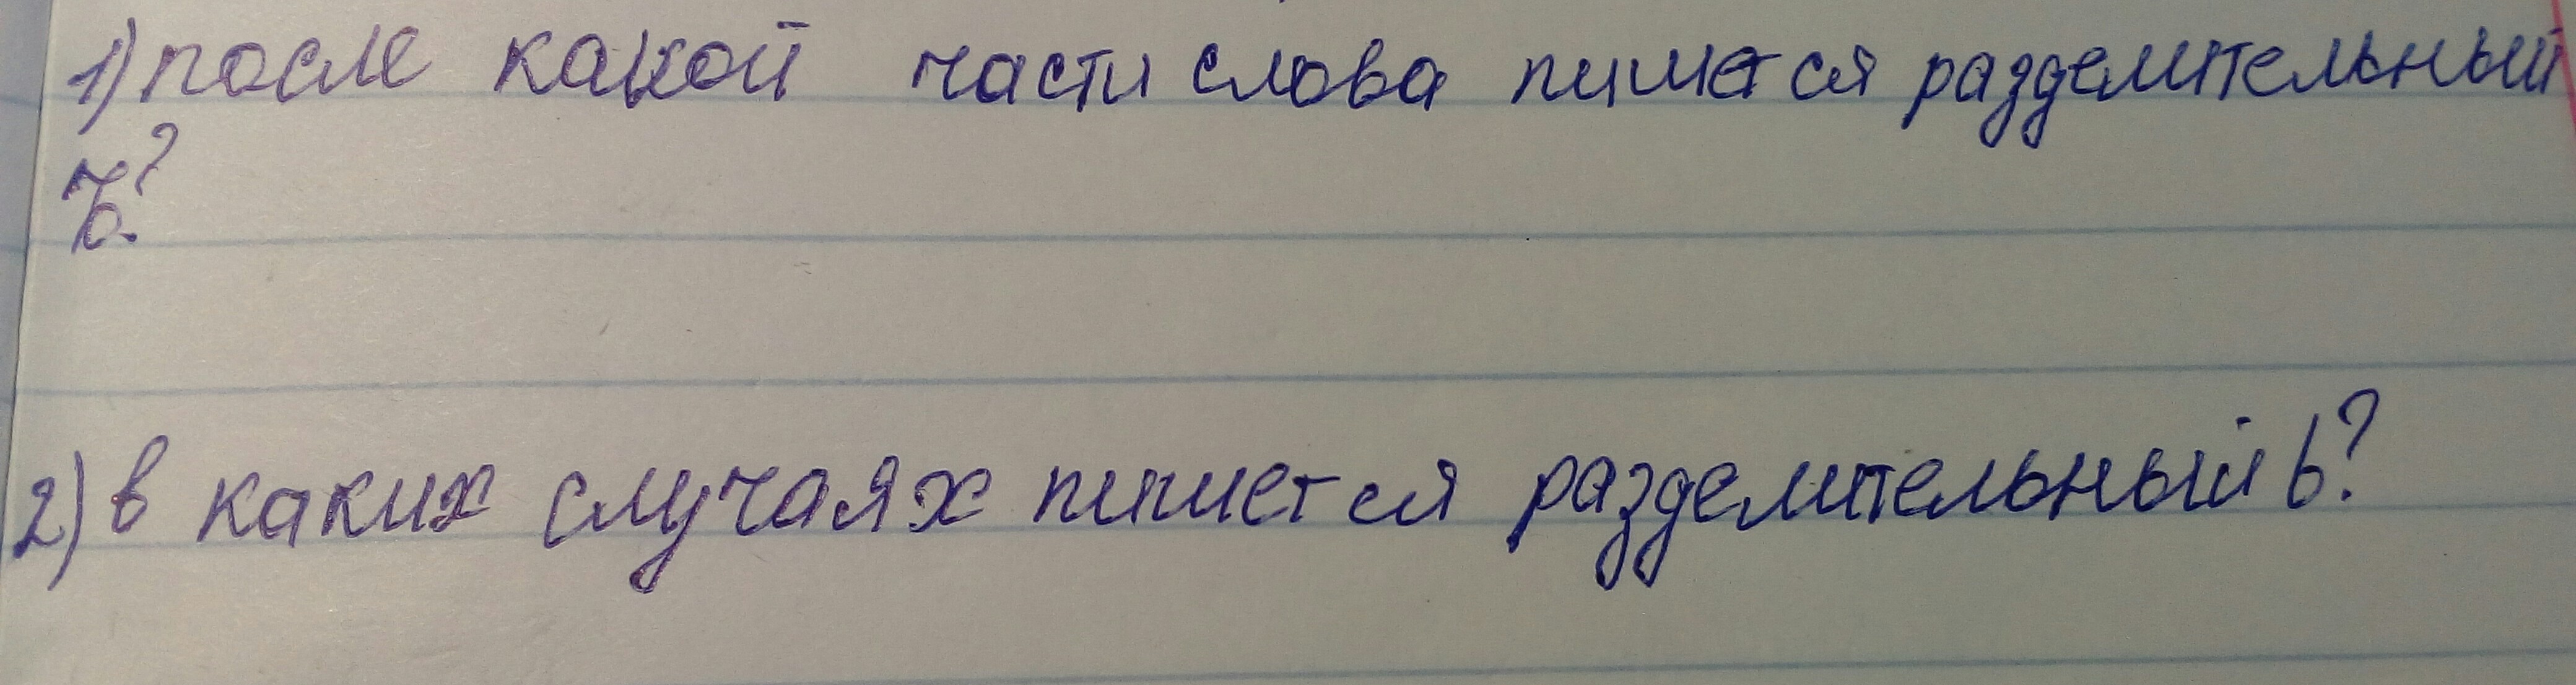 1) после какой части слова пишется разделительный
ъ?
2) в каких случаях пишется разделительный ь?